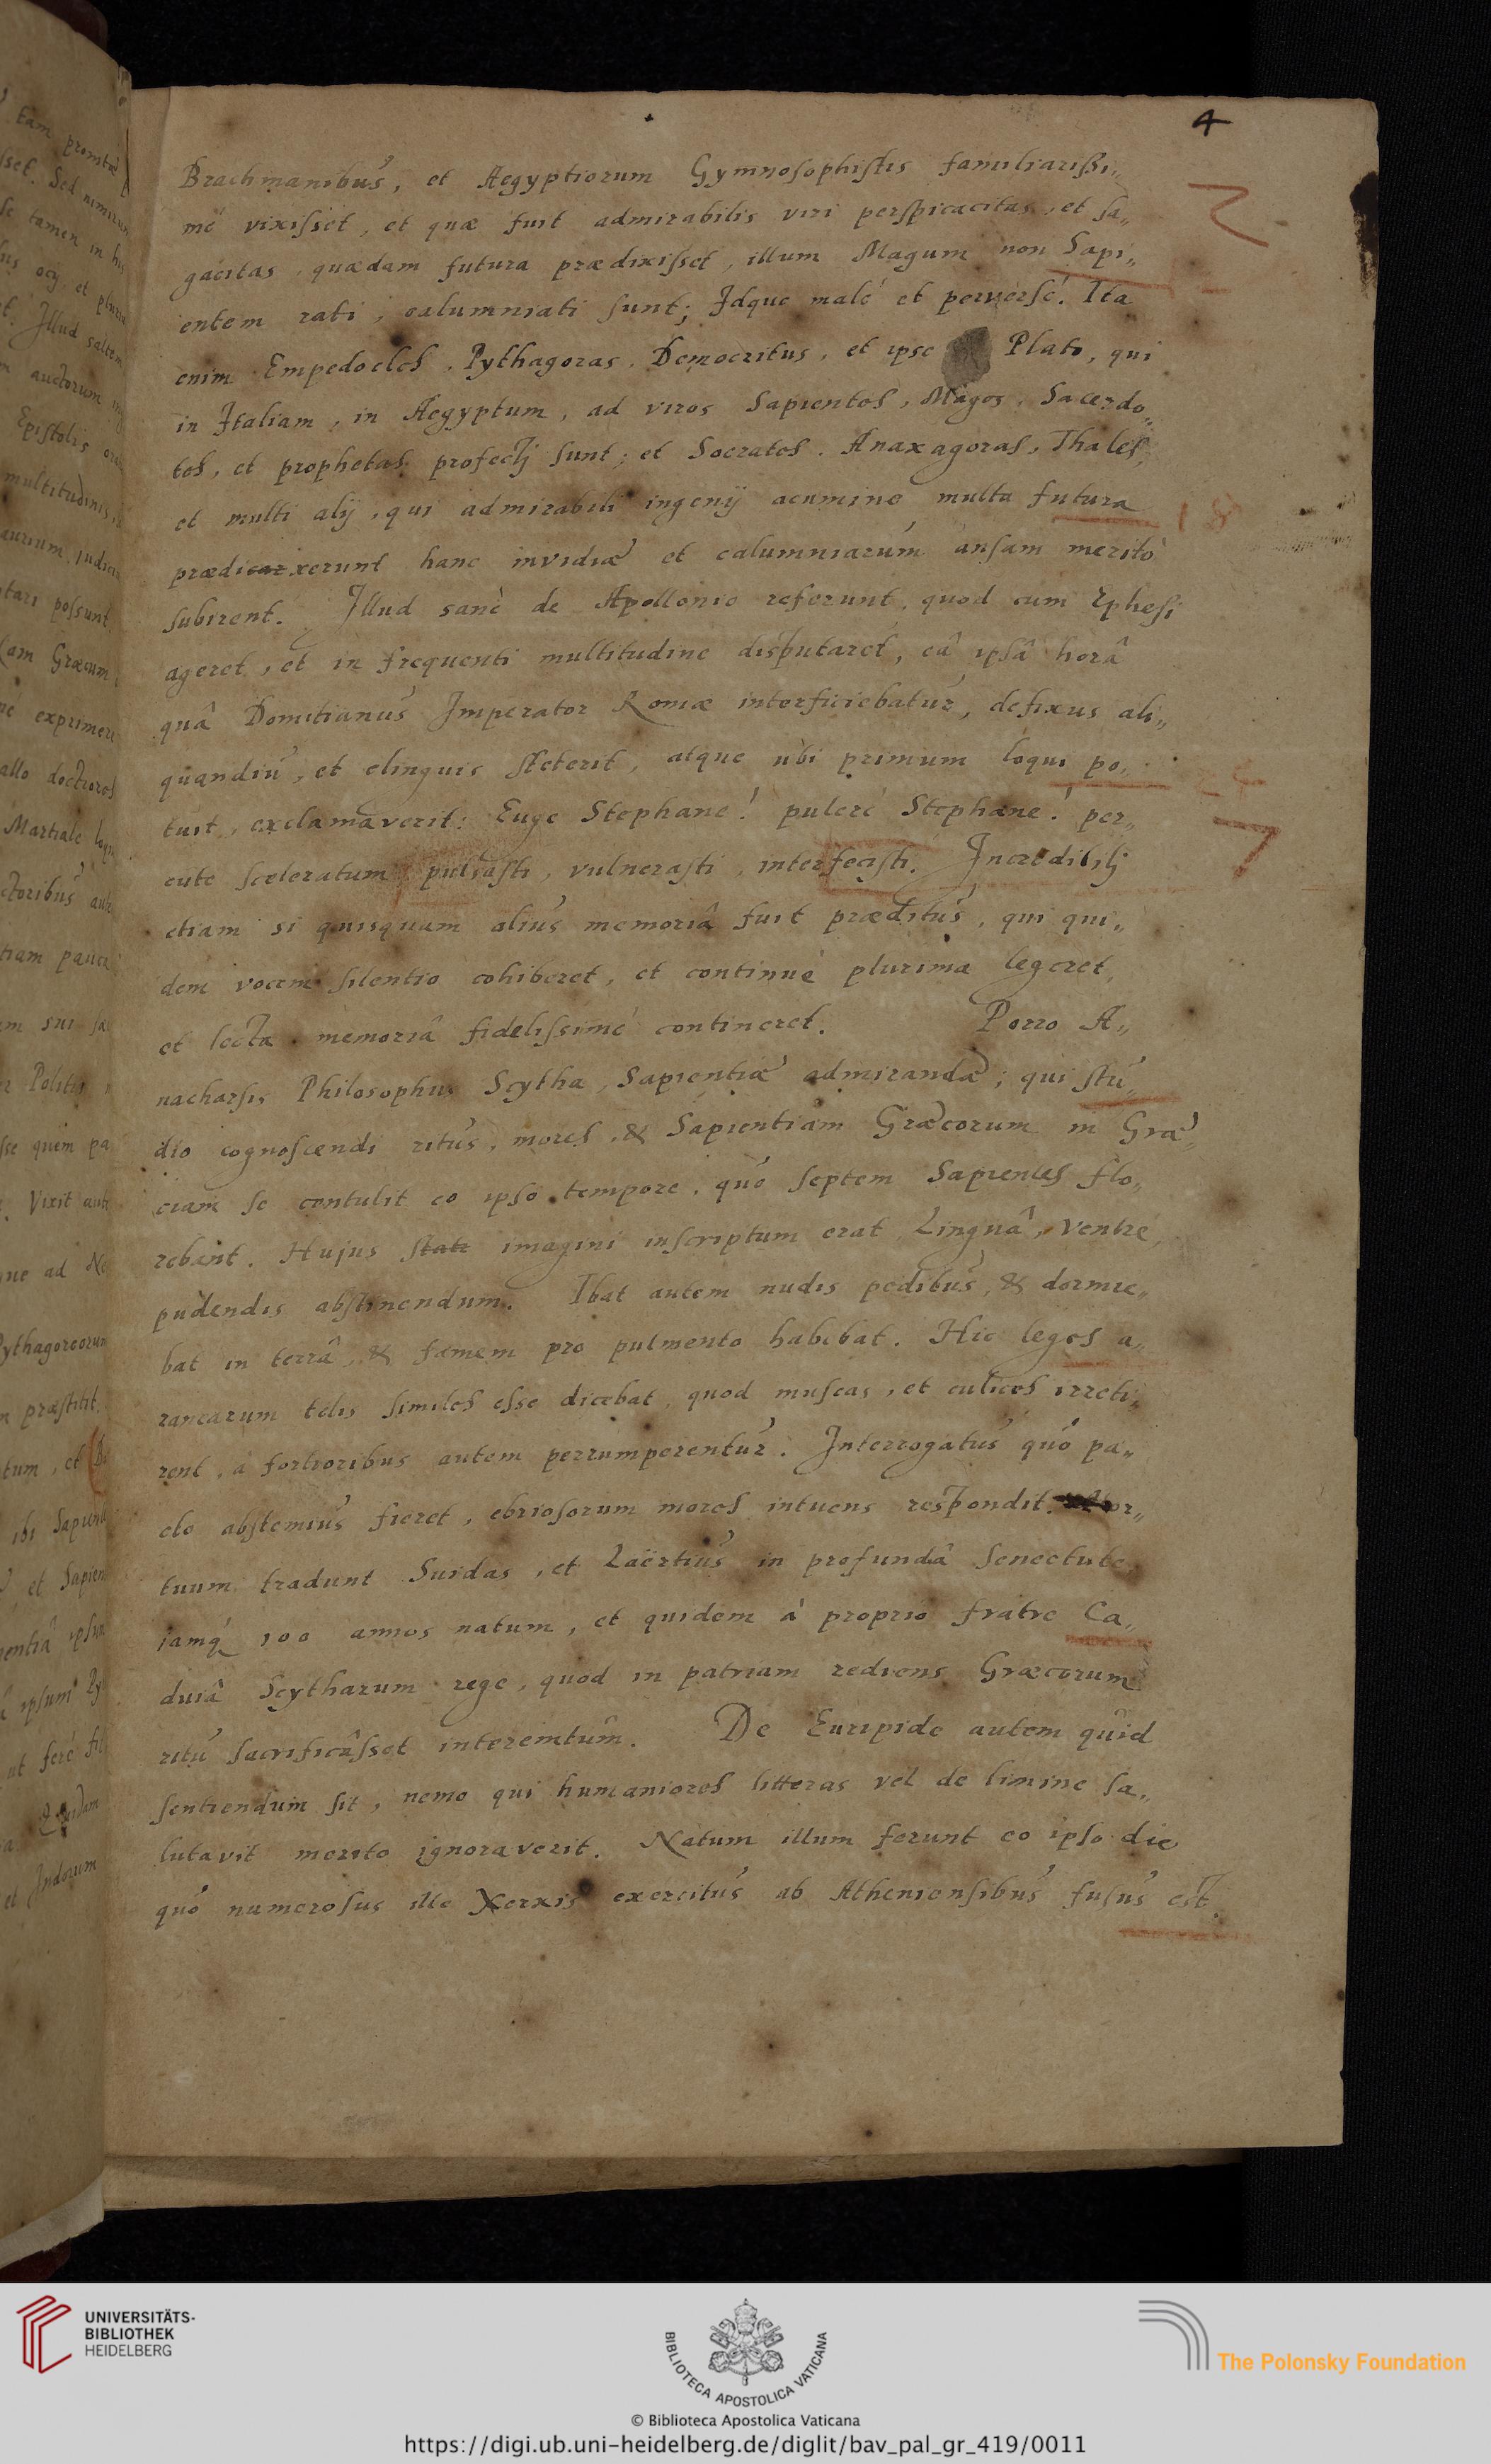 4
Brachmanibus, et Aegyptiorum Gymnosophistis familiarissi„
mé vixisset, et quæ fuit admirabilis viri perspicacitas, et sa„
gacitas, quædam futura prædixisset, illum Magum non Sapi„
entem rati, calumniati sunt; Idque malé et perversé. Ita
enim Empedocles, Pythagoras, Democritus, et ipse Plato, qui
in Italiam, in Aegyptum, ad viros Sapientes, Magos, Sacerdo„
tes, et prophetas profectj sunt; et Socrates, Anaxagoras, Thales,
et multi alij, qui admirabili ingenij acumine multa futura
18
prædicarxerunt hanc invidiæ et calumniarum ansam meritò
subirent. Illud sanè de Apollonio referunt, quod cum Ephesi
ageret, et in frequenti multitudine disputaret, eâ ipsâ horâ
quâ Domitianus Imperator Romæ interficiebatur, defixus ali„
quandiu, et elinguis steterit, atque ubi primum loqui po„
tuit, exclamaverit: Euge Stephane! pulcré Stephane! per„
cute sceleratum, pulsasti, vulnerasti, interfecisti. Incredibilj
etiam si quisquam alius memoriâ fuit præditus, qui qui„
dem vocem silentio cohiberet, et continué plurima legeret,
et lecta memoriâ fidelissimé contineret. Porro A„
nacharsis Philosophus Scytha, Sapientiæ admirandæ; qui stu„
dio cognoscendi ritus, mores, & Sapientiam Græcorum in Græ„
ciam se contulit eo ipso tempore, quo septem Sapientes flo„
rebant. Hujus statu imagini inscriptum erat Linguâ, Ventre,
pudendis abstinendum. Ibat autem nudis pedibus, & dormie„
bat in terrâ, & famem pro pulmento habebat. Hic leges a„
ranearum telis similes esse dicebat, quod muscas, et culices irreti„
rent, à fortioribus autem perrumperentur. Interrogatus quo pa„
cto abstemius fieret, ebriosorum mores intuens respondit. Mor„
tuum tradunt Suidas, et Laërtius in profundâ senectute,
iamq́ 100 annos natum, et quidem à proprio fratre Ca„
duiâ Scytharum rege, quod in patriam rediens Græcorum
ritu sacrificâsset interemtum. De Euripide autem quid
sentiendum sit, nemo qui humaniores litteras vel de limine sa„
lutavit merito ignoraverit. Natum illum ferunt eo ipso die
quo numerosus ille Xerxis exercitus ab Atheniensibus fusus est.
UNIVERSITÄTS-
BIBLIOTHEK
HEIDELBERG
BIBLIOTECA APOSTOLICA VATICANA
The Polonsky Foundation
© Biblioteca Apostolica Vaticana
https://digi.ub.uni-heidelberg.de/diglit/bav_pal_gr_419/0011